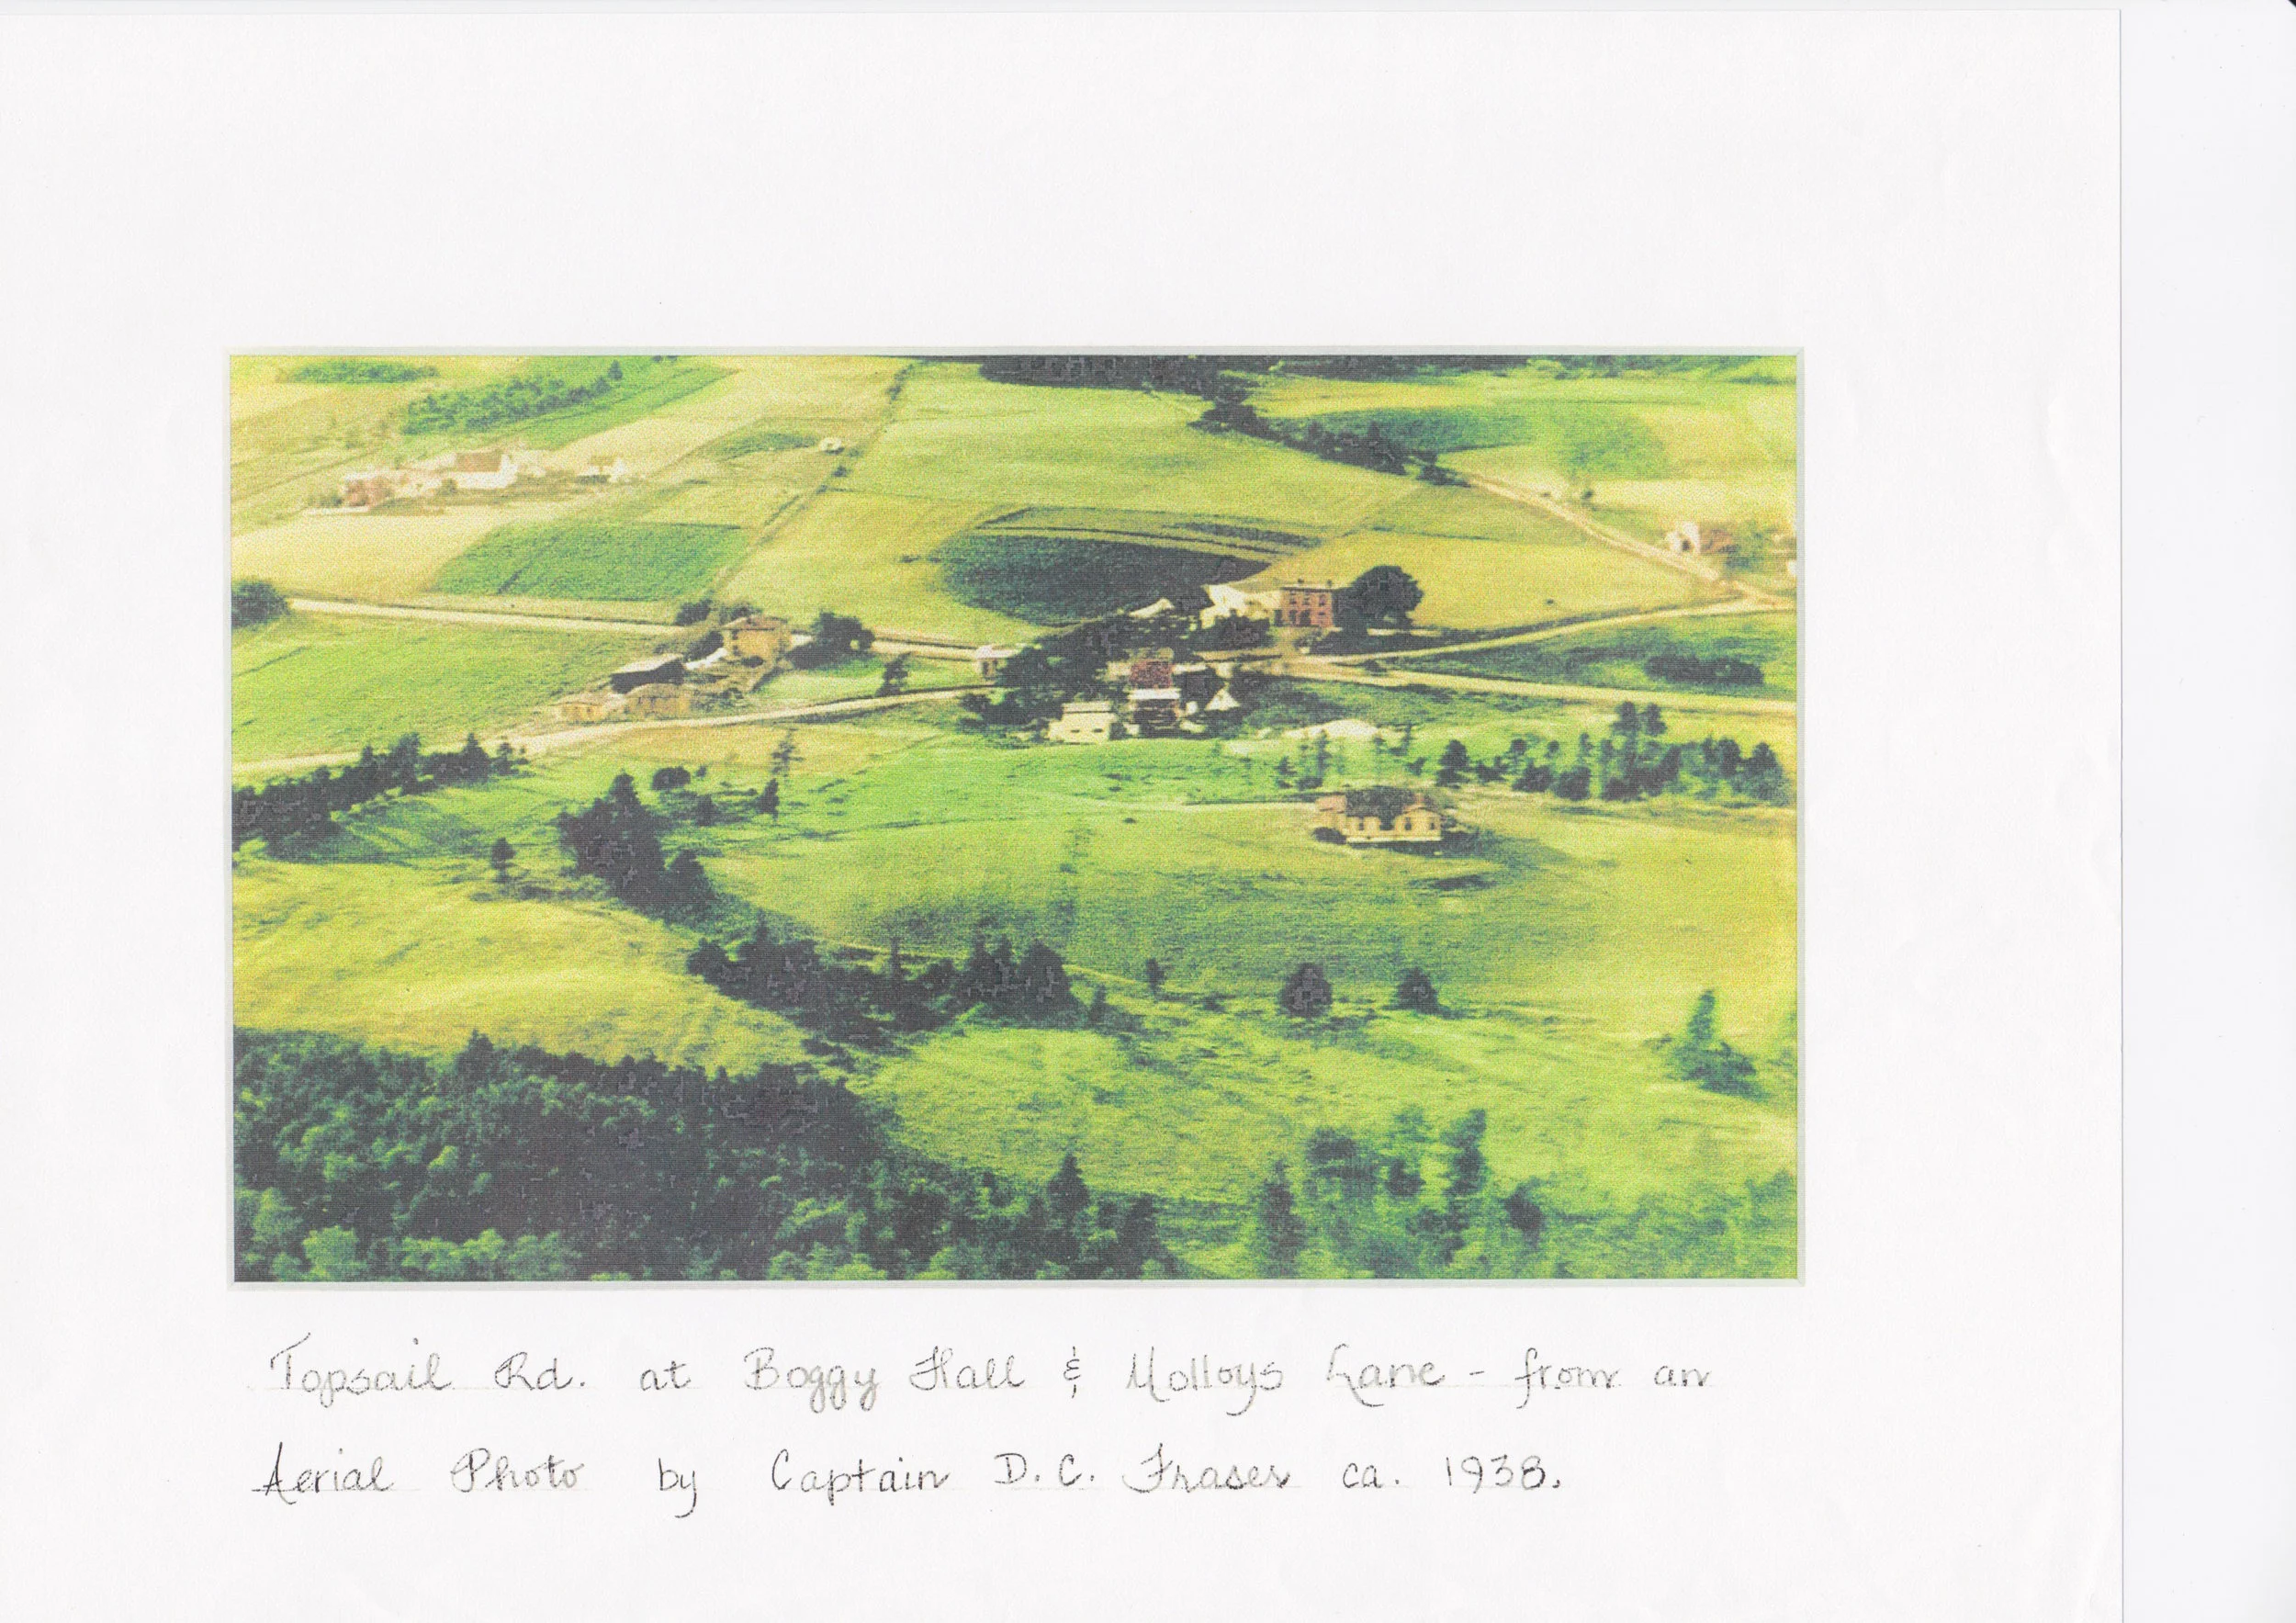 Topsail Rd. at Boggy Hall & Molloys Lane - from an
Aerial Photo by Captain D.C. Fraser ca. 1938.